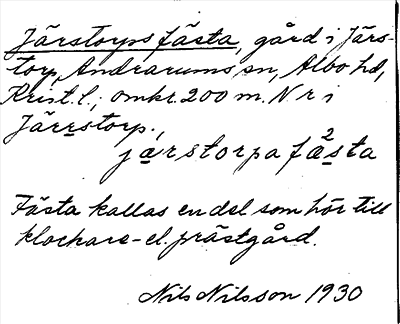 Järstorps fästa, gård i Järs-
torp, Andrarums sn, Albo hd,
Krist. l.; omkr. 200 m. N r i
Järrstorp.,
jærstorpa fæ²sta
Fästa kallas en del som hör till
klockare- el. prästgård.
Nils Nilsson 1930